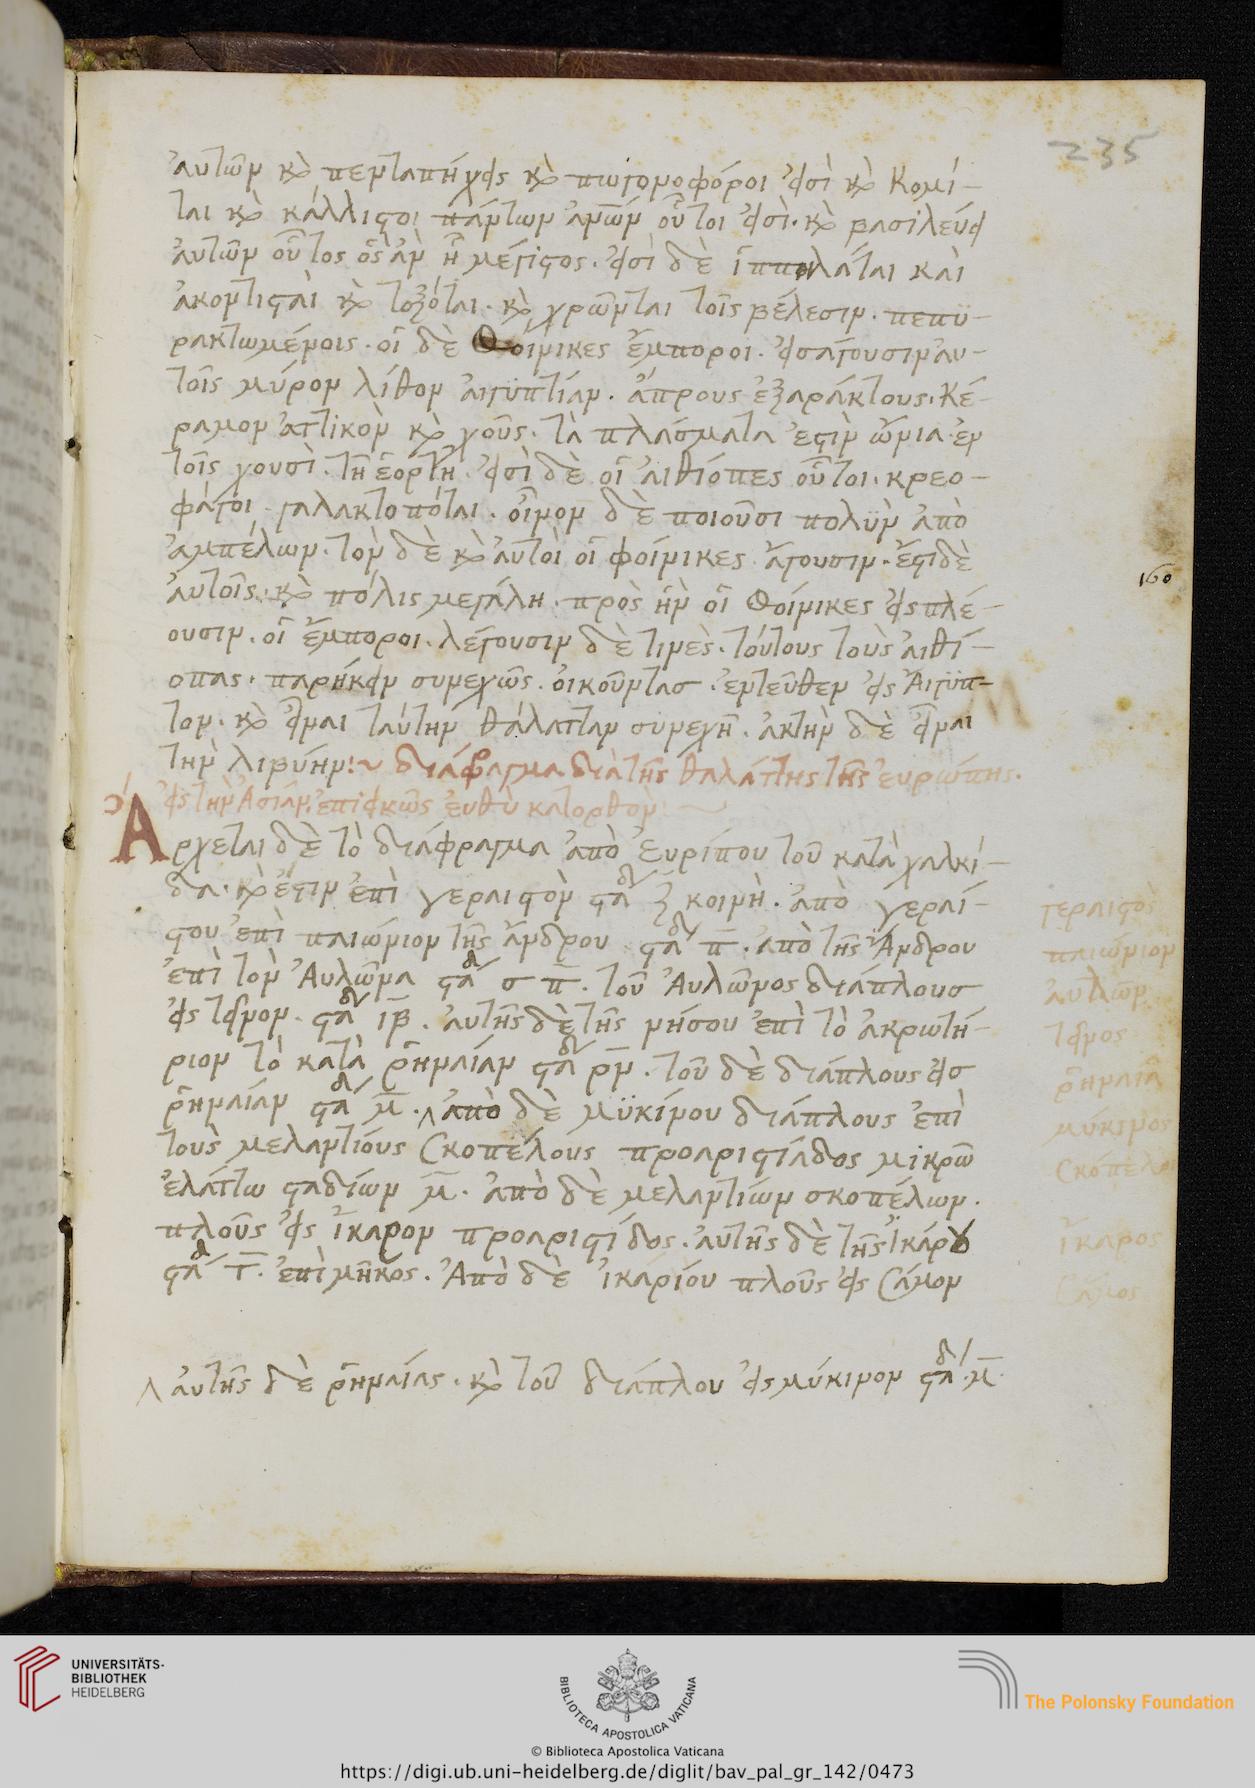 235
αὐτῶν κὰι πενταπήχεις κὰι πωγονοφόροι εἰσὶ κὰι κομί-
ται κὰι κάλλιστοι πάντων ἀνῶν οὗτοι εἰσὶ· κὰι βασιλεύει
αὐτῶν οὗτος ὃς ἂν ἦ μέγιστος· εἰσὶ δὲ ἱππηλάται καὶ
ἀκοντισταὶ κὰι τοξόται· κὰι χρῶνται τοῖς βέλεσιν· πεπϋ-
ρακτωμένοις· οἱ δὲ Φοίνικες ἔμποροι· εἰσάγουσιν αυ-
τοῖς μύρον λίθον ἀιγϋπτίαν· ἄπρους ἐξαράκτους· κέ-
ραμον ἀττικὸν κὰι χοῦς· τὰ πλάσματα ἐστὶν ὤνια· ἐν
τοῖς χουσὶ· τῆ ἑορτῆ· εἰσὶ δὲ οἱ ἀιθίοπες οὗτοι· κρεο-
φάγοι· γαλακτοπόται· οἶνον δὲ ποιοῦσι πολϋν ἀπὸ
ἀμπέλων· τὸν δὲ κὰι αὐτοὶ οἱ φοίνικες ἄγουσιν· ἔστι δὲ
αὐτοῖς· κὰι πόλις μεγάλη· πρὸς ἣν οἱ Φοίνικες εἰσπλέ-
ουσιν· οἱ ἔμποροι· λέγουσιν δὲ τινὲς· τούτους τοὺς ἀιθί-
οπας· παρήκειν συνεχῶς· οἰκοῦντασ· ἐντεῦθεν εἰς Ἀιγϋπ-
τον· κὰι εἶναι ταύτην θάλατταν συνεχῆ· ἀκτὴν δὲ εἶναι
τὴν λιβύην:~ διάφραγμα διὰ τῆς θαλάττης τῆς ἐυρώπης·
εἰς τὴν Ἀσίαν· ἐπιεικῶς ἐυθὺ κατορθὸν
Ἄρχεται δὲ τὸ διάφραγμα ἀπὸ Ἐυρίπου τοῦ κατὰ χαλκί-
δα· κὰι ἔστιν ἐπὶ γεραιστὸν σταδ ξ κοινὴ· ἀπὸ γεραί-
στου ἐπὶ παιώνιον τῆς Ἄνδρου σταδ π· ἀπὸ τῆς Ἄνδρου
ἐπὶ τὸν Ἀυλῶνα στα σ π· τοῦ Ἀυλῶνος διάπλουσ
εἰς τεῖνον· σταδ ιβ· αὐτῆς δὲ τῆς νήσου ἐπὶ τὸ ἀκρωτή-
ριον τὸ κατὰ ῥηναίαν σταδ ρν· τοῦ δὲ διάπλους εἰσ
ῥηναίαν στα μ· ἀπὸ δὲ μϋκίνου διάπλους ἐπὶ
τοὺς μελαντίους σκοπέλους προαριστιάδος μικρῶ
ἐλάττω σταδίων μ· ἀπὸ δὲ μελαντίων σκοπέλων·
πλοῦς εἰς ἴκαρον προαριστίδος· αὐτῆς δὲ τῆς Ἰκάρου
στα τ· ἐπὶ μῆκος· Ἀπὸ δὲ ἰκαρίου πλοῦς εἰς Σάμον
αὐτῆς δὲ ῥηναίας· κὰι τοῦ διάπλου εἰς μύκινον σταδ· μ·
160
γεραιστὸς
παιώνιον
ἀυλῶν
τεῖνος
ῥηναία
μύκινος
Σκόπελοι
ἴκαρος
Σάμος
UNIVERSITÄTS-
BIBLIOTHEK
HEIDELBERG
BIBLIOTECA APOSTOLICA VATICANA
© Biblioteca Apostolica Vaticana
The Polonsky Foundation
https://digi.ub.uni-heidelberg.de/diglit/bav_pal_gr_142/0473